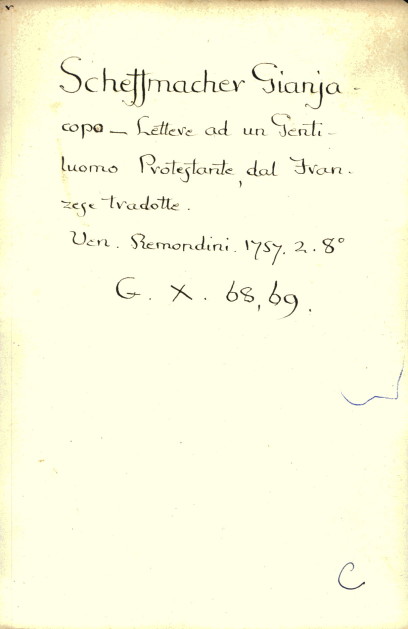 Scheffmacher Gianja-
copo - Lettere ad un Genti-
luomo Protestante, dal Fran.
zese tradotte.
Ven. Remondini. 1757. 2. 8°
G. X. 68, 69.
C